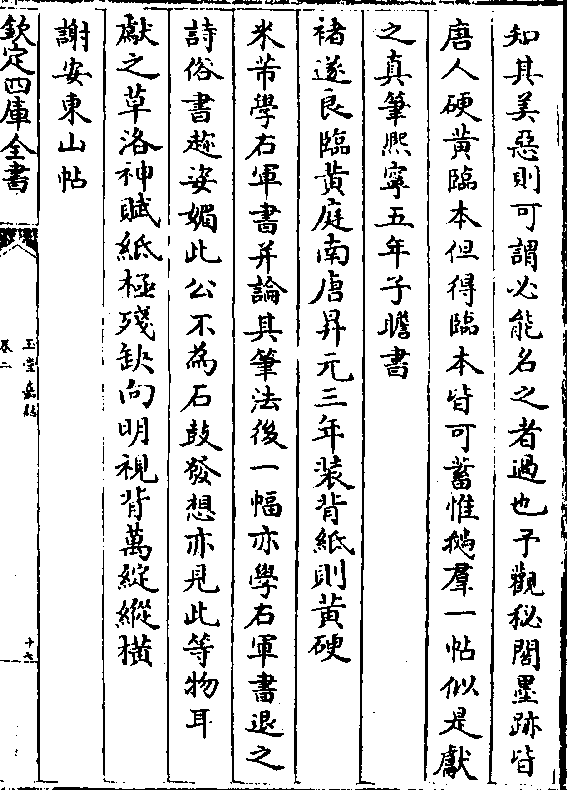 知其美惡則可謂必能名之者過也予觀秘閣墨跡皆
唐人硬黃臨本但得臨本皆可蓄惟鵝羣一帖似是獻
之真筆熙寧五年子瞻書
褚遂良臨黃庭南唐昇元三年裝背紙則黃硬
米芾學右軍書并論其筆法後一幅亦學右軍書退之
詩俗書趂姿媚此公不為石鼓發想亦見此等物耳
獻之草洛神賦紙極殘缺向明視背萬綻縱橫
謝安東山帖
欽定四庫全書
卷二